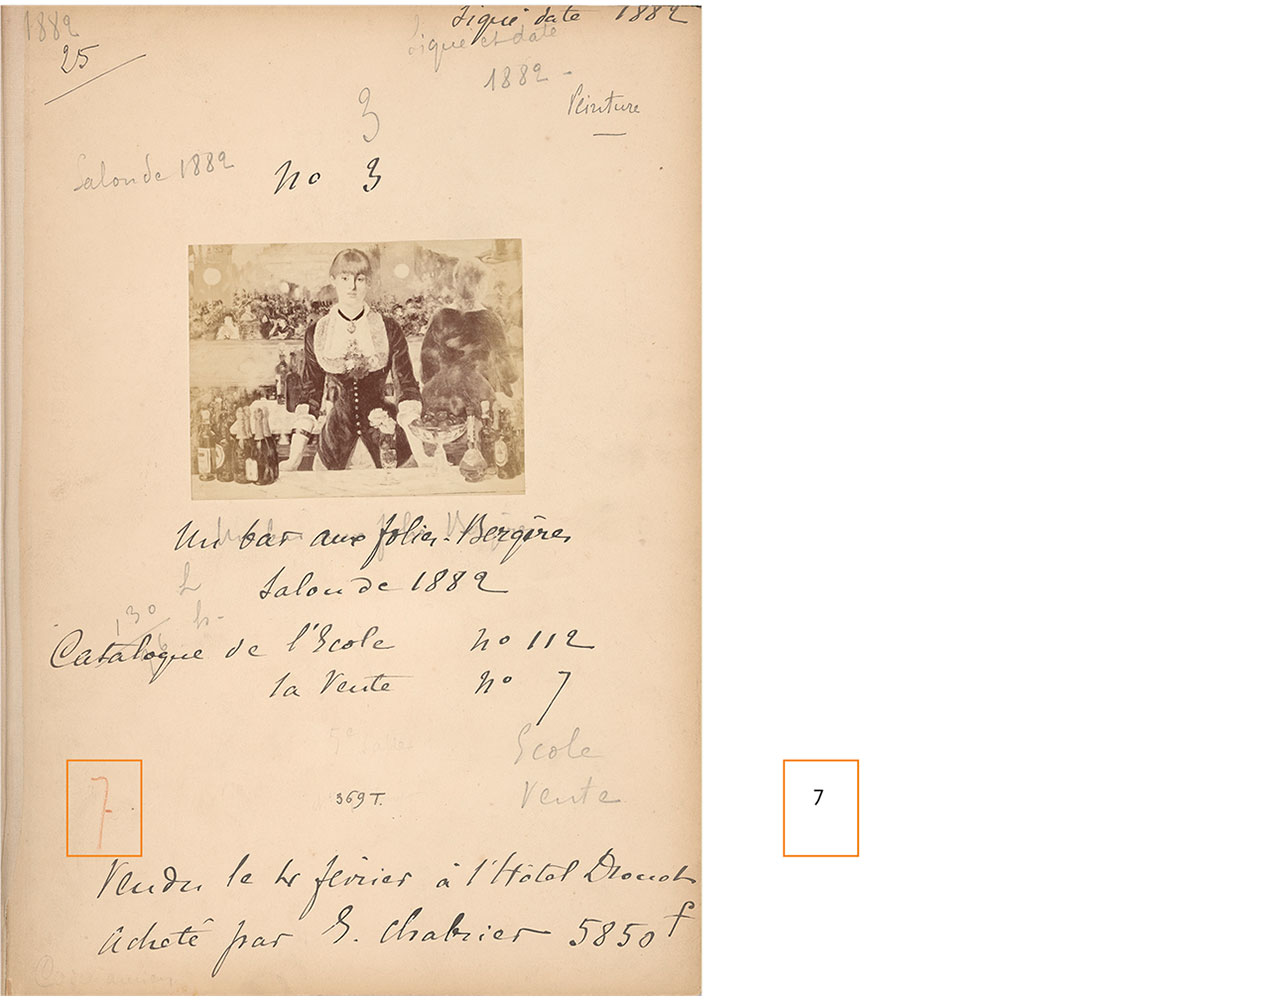 1882
25
Signé date 1882
Signé et date
1882 -
Peinture
3
Salon de 1882
No 3
Un bar aux folies-Bergères
Salon de 1882
Catalogue de l'Ecole No 112
la Vente No 7
5e Salles
Ecole
Vente
7
7
369 T.
Vendu le 4 février à l'Hôtel Drouot
Acheté par E. Chabrier 5850 f